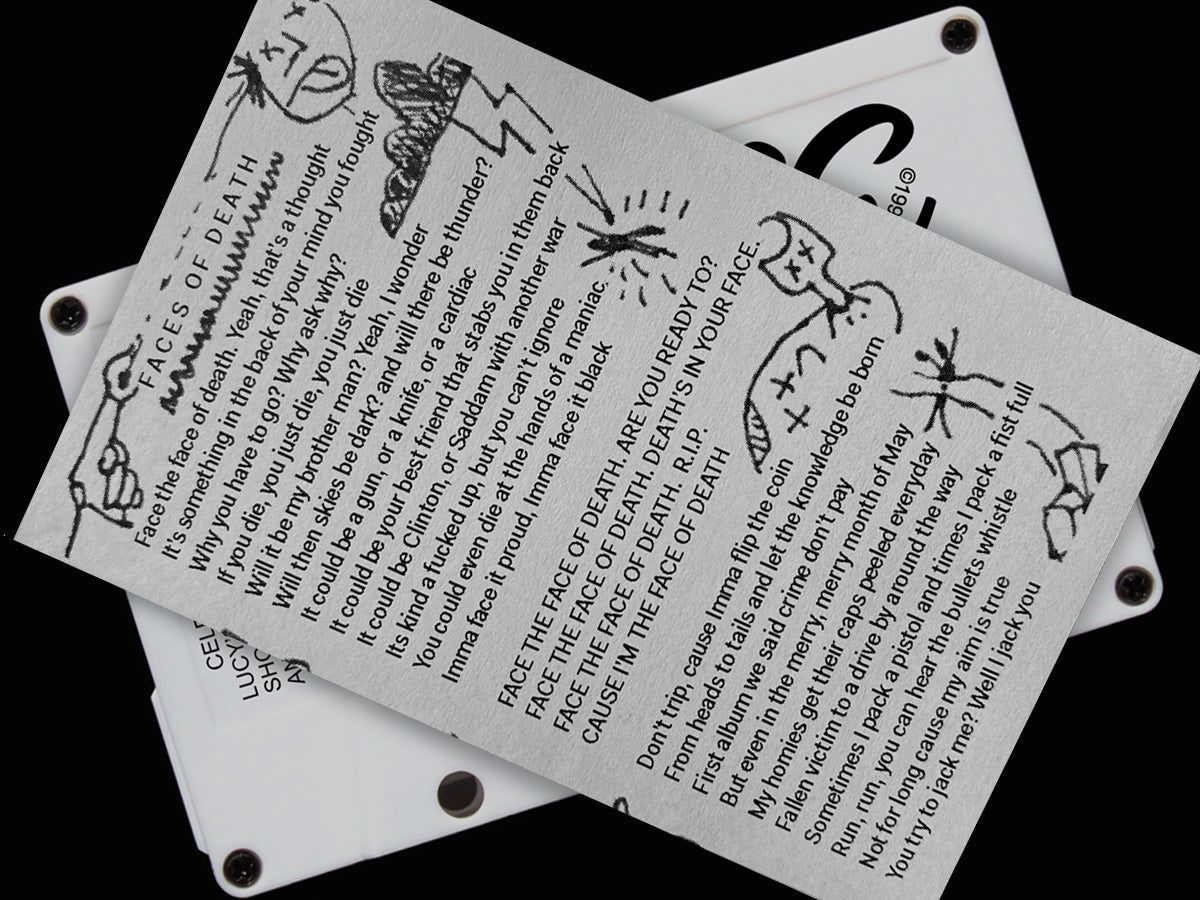 FACES OF DEATH
Face the face of death. Yeah, that's a thought
It's something in the back of your mind you fought
Why you have to go? Why ask why?
If you die, you just die, you just die
Will it be my brother man? Yeah, I wonder
Will then skies be dark? and will there be thunder?
It could be a gun, or a knife, or a cardiac
It could be your best friend that stabs you in them back
It could be Clinton, or Saddam with another war
Its kind a fucked up, but you can't ignore
You could even die at the hands of a maniac,
Imma face it proud, Imma face it black
FACE THE FACE OF DEATH. ARE YOU READY TO?
FACE THE FACE OF DEATH. DEATH'S IN YOUR FACE.
FACE THE FACE OF DEATH. R.I.P.
CAUSE I'M THE FACE OF DEATH
Don't trip, cause Imma flip the coin
From heads to tails and let the knowledge be born
First album we said crime don't pay
But even in the merry, merry month of May
My homies get their caps peeled everyday
Fallen victim to a drive by around the way
Sometimes I pack a pistol and times I pack a fist full
Run, run, you can hear the bullets whistle
Not for long cause my aim is true
You try to jack me? Well I jack you
©199
LUCY